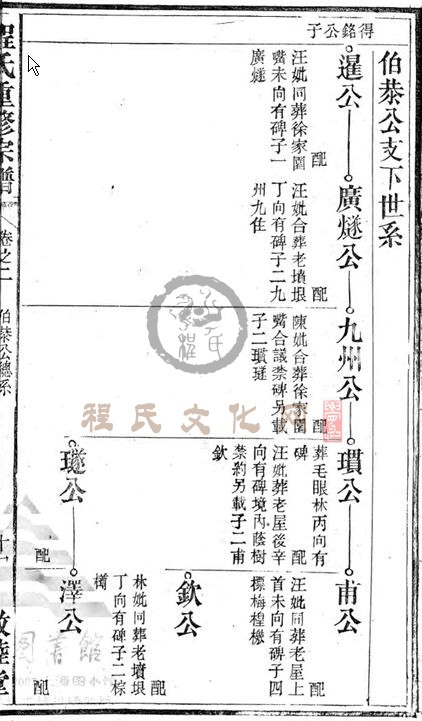 伯恭公支下世系
得銘公子
暹公
配
汪妣同葬徐家園
嘴未向有碑子一
廣燧
廣燧公
配
汪妣合葬老墳垠
丁向有碑子二九
州九住
九州公
配
陳妣合葬徐家園
嘴合議禁碑另載
子二瓆璲
瓆公
葬毛眼林丙向有
碑
配
汪妣葬老屋後辛
向有碑境內蔭樹
禁約另載子二甫
欽
甫公
配
汪妣同葬老屋上
首未向有碑子四
標梅橖機
欽公
配
璲公
配
林妣同葬老墳垠
丁向有碑子二棕
樽
澤公
配
程氏重修宗譜
卷之二
伯恭公總系
十一
敦睦堂
程氏文化网
图書館